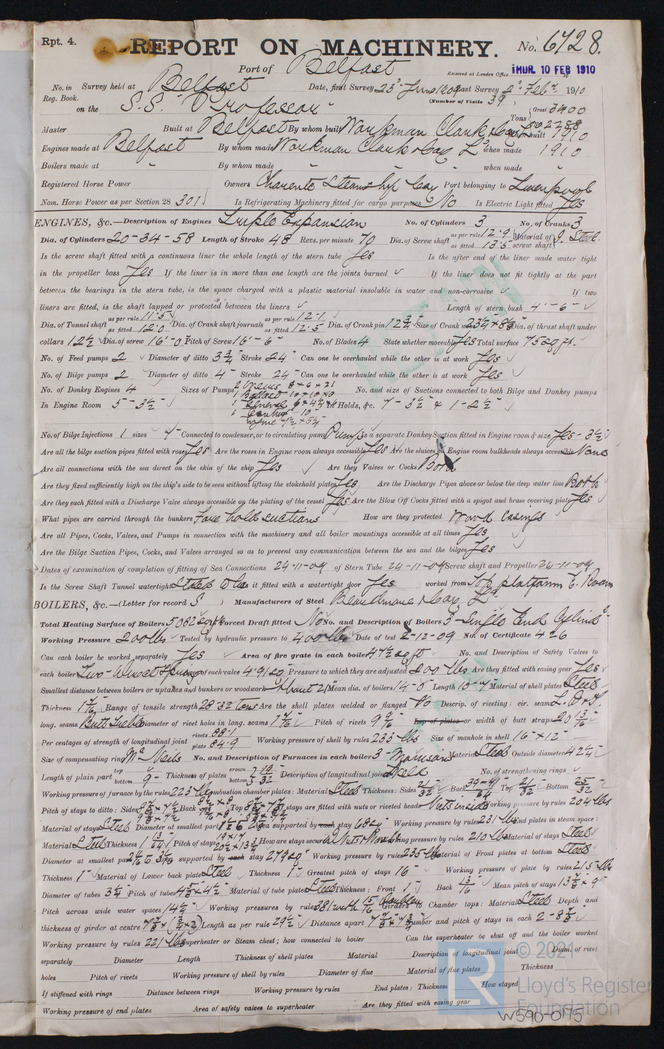 Rpt. 4.
REPORT ON MACHINERY. No. 6728.
Port of Belfast
Received at London Office THUR. 10 FEB 1910
No. in Survey held at Belfast Date, first Survey 23rd June 1909 Last Survey 2nd Feby 1910
Reg. Book. (Number of Visits 39)
on the S.S. "Professor" Tons Gross 3400
Master Built at Belfast By whom built Workman Clark & Coy Ld When built 1910
Engines made at Belfast By whom made Workman Clark & Coy Ld when made 1910
Boilers made at " By whom made " when made "
Registered Horse Power Owners Charente Steamship Coy Port belonging to Liverpool
Nom. Horse Power as per Section 28 301 Is Refrigerating Machinery fitted for cargo purposes No Is Electric Light fitted Yes
ENGINES, &c.—Description of Engines Triple Expansion No. of Cylinders 3 No. of Cranks 3
Dia. of Cylinders 20-34-58 Length of Stroke 48 Revs. per minute 70 Dia. of Screw shaft as per rule 12.9 as fitted 13.5 Material of screw shaft I. Steel
Is the screw shaft fitted with a continuous liner the whole length of the stern tube Yes Is the after end of the liner made water tight
in the propeller boss Yes If the liner is in more than one length are the joints burned If the liner does not fit tightly at the part
between the bearings in the stern tube, is the space charged with a plastic material insoluble in water and non-corrosive If two
liners are fitted, is the shaft lapped or protected between the liners Length of stern bush 4'-6"
Dia. of Tunnel shaft as per rule 11.5 as fitted 12.0 Dia. of Crank shaft journals as per rule 12.1 as fitted 12.5 Dia. of Crank pin 12 3/4 Size of Crank webs Dia. of thrust shaft under
collars 12 1/2 Dia. of screw 16'-0 Pitch of Screw 16'-6" No. of Blades 4 State whether moveable Yes Total surface 75 sq ft
No. of Feed pumps 2 Diameter of ditto 3 3/4 Stroke 24" Can one be overhauled while the other is at work Yes
No. of Bilge pumps 2 Diameter of ditto 4" Stroke 24" Can one be overhauled while the other is at work Yes
No. of Donkey Engines 4 Sizes of Pumps No. and size of Suctions connected to both Bilge and Donkey pumps
In Engine Room 5 - 3 1/2 In Holds, &c. 7 - 3 1/2 & 1 - 2 1/2
No. of Bilge Injections 1 sizes 4" Connected to condenser, or to circulating pump Pump Is a separate Donkey Suction fitted in Engine room & size Yes - 3 1/2
Are all the bilge suction pipes fitted with roses Yes Are the roses in Engine room always accessible Yes Are the sluices on Engine room bulkheads always accessible None
Are all connections with the sea direct on the skin of the ship Yes Are they Valves or Cocks Both
Are they fixed sufficiently high on the ship's side to be seen without lifting the stokehold plates Yes Are the Discharge Pipes above or below the deep water line Both
Are they each fitted with a Discharge Valve always accessible on the plating of the vessel Yes Are the Blow Off Cocks fitted with a spigot and brass covering plate Yes
What pipes are carried through the bunkers Fore hold suctions How are they protected Wood casings
Are all Pipes, Cocks, Valves, and Pumps in connection with the machinery and all boiler mountings accessible at all times Yes
Are the Bilge Suction Pipes, Cocks, and Valves arranged so as to prevent any communication between the sea and the bilges Yes
Dates of examination of completion of fitting of Sea Connections 24-11-09 of Stern Tube 24-11-09 Screw shaft and Propeller 26-11-09
Is the Screw Shaft Tunnel watertight Steel W tight Is it fitted with a watertight door Yes worked from Top platform E. Room
BOILERS, &c.—(Letter for record S) Manufacturers of Steel Beardmore & Coy Ld
Total Heating Surface of Boilers 5062 sq ft Forced Draft fitted No No. and Description of Boilers 3 - Single End Cylindl
Working Pressure 200 lbs Tested by hydraulic pressure to 400 lbs Date of test 2-12-09 No. of Certificate 426
Can each boiler be worked separately Yes Area of fire grate in each boiler 47 1/2 sq ft No. and Description of Safety Valves to
each boiler Two - Direct Spring Area of each valve 4.91 sq" Pressure to which they are adjusted 200 lbs Are they fitted with easing gear Yes
Smallest distance between boilers or uptakes and bunkers or woodwork Mean dia. of boilers 14'-0" Length 10'-7" Material of shell plates Steel
Thickness Range of tensile strength 28-32 tons Are the shell plates welded or flanged No Descrip. of riveting: cir. seams
long. seams Butt Treble Diameter of rivet holes in long. seams Pitch of rivets Lap of plates or width of butt straps
Per centages of strength of longitudinal joint rivets 88.1 plate 84.9 Working pressure of shell by rules 233 lbs Size of manhole in shell 16" x 12"
Size of compensating ring McNeils No. and Description of Furnaces in each boiler 3 - Morisons Material Steel Outside diameter
Length of plain part top bottom 9" Thickness of plates crown bottom Description of longitudinal joint Weld No. of strengthening rings
Working pressure of furnace by the rules 223 lbs Combustion chamber plates: Material Steel Thickness: Sides 21/32 Back Top 21/32 Bottom 25/32
Pitch of stays to ditto: Sides Back Top If stays are fitted with nuts or riveted heads Nuts inside Working pressure by rules 204 lbs
Material of stays Steel Diameter at smallest part Area supported by each stay Working pressure by rules 231 lbs End plates in steam space:
Material Steel Thickness Pitch of stays How are stays secured Working pressure by rules 210 lbs Material of stays Steel
Diameter at smallest part Area supported by each stay Working pressure by rules 235 lbs Material of Front plates at bottom Steel
Thickness 1" Material of Lower back plate Steel Thickness 1" Greatest pitch of stays 16" Working pressure of plate by rules 215 lbs
Diameter of tubes 3 1/4 Pitch of tubes Material of tube plates Steel Thickness: Front 1" Back 13/16 Mean pitch of stays
Pitch across wide water spaces 14 1/2 Working pressures by rules Girders to Chamber tops: Material Steel Depth and
thickness of girder at centre Length as per rule Distance apart Number and pitch of stays in each 2 - 8 3/4
Working pressure by rules 221 lbs Superheater or Steam chest; how connected to boiler Can the superheater be shut off and the boiler worked
separately Diameter Length Thickness of shell plates Material Description of longitudinal joint Diam. of rivet
holes Pitch of rivets Working pressure of shell by rules Diameter of flue Material of flue plates Thickness
If stiffened with rings Distance between rings Working pressure by rules End plates: Thickness How stayed
Working pressure of end plates Area of safety valves to superheater Are they fitted with easing gear
© 2021
Lloyd's Register
Foundation
W590-0175